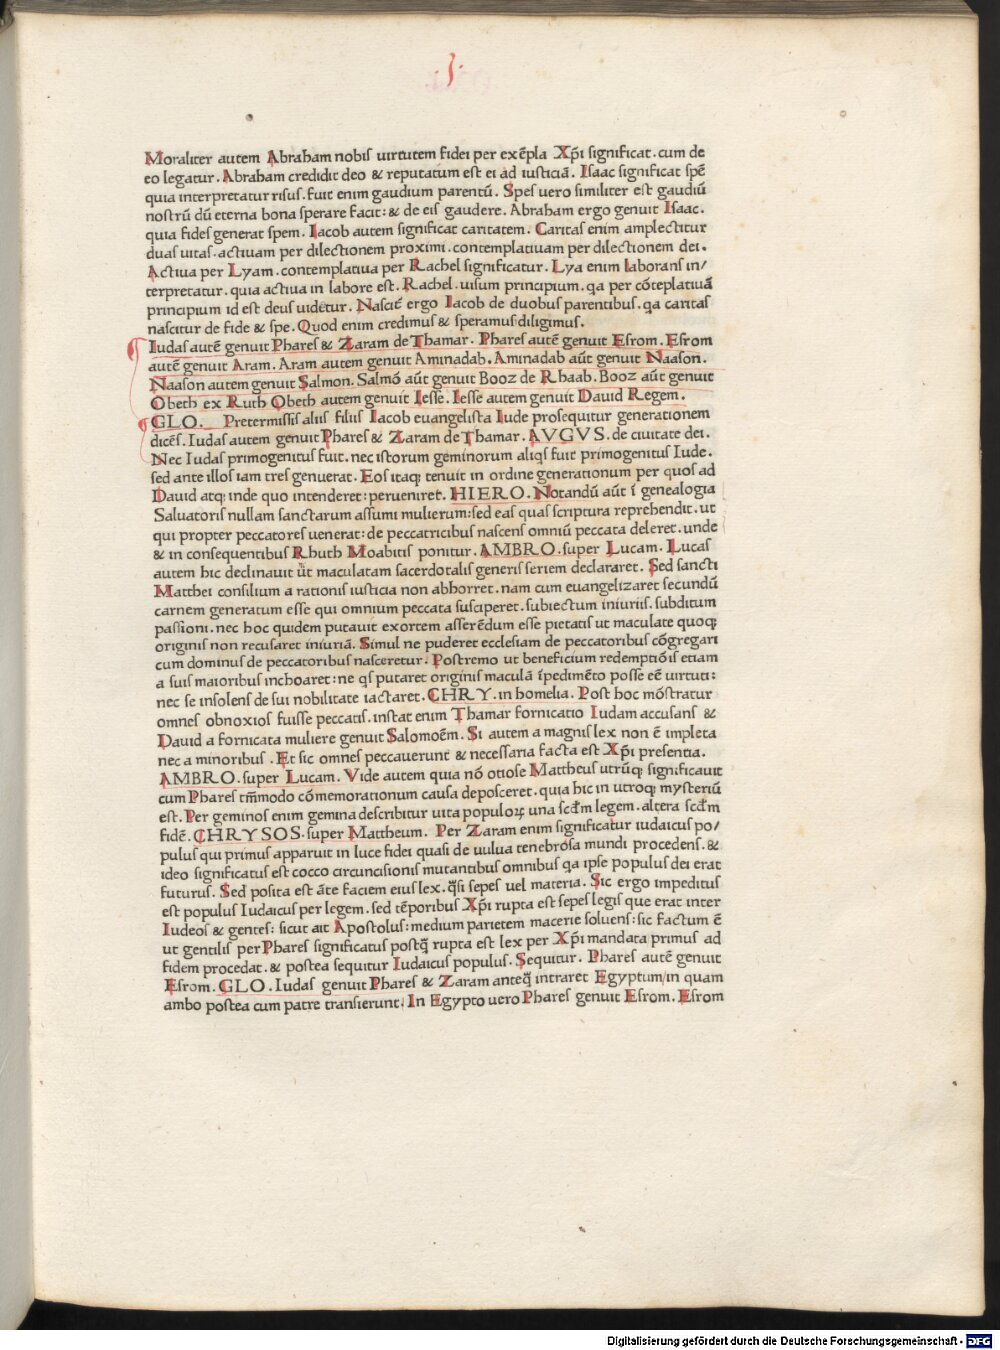 ·3·
Moraliter autem Abraham nobis uirtutem fidei per exēpla Xp̄i significat. cum de
eo legatur. Abraham credidit deo & reputatum est ei ad iusticiā. Isaac significat spē
quia interpretatur risus. fuit enim gaudium parentū. Spes uero similiter est gaudiū
nostrū dū eterna bona sperare facit: & de eis gaudere. Abraham ergo genuit Isaac.
quia fides generat spem. Iacob autem significat caritatem. Caritas enim amplectitur
duas uitas. actiuam per dilectionem proximi. contemplatiuam per dilectionem dei.
Actiua per Lyam. contemplatiua per Rachel significatur. Lya enim laborans in/
terpretatur. quia actiua in labore est. Rachel. uisum principium. qa per cōteplatiuā
principium id est deus uidetur. Nascit᷑ ergo Iacob de duobus parentibus. qa caritas
nascitur de fide & spe. Quod enim credimus & speramus diligimus.
Iudas autē genuit Phares & Zaram de Thamar. Phares autē genuit Esrom. Esrom
autē genuit Aram. Aram autem genuit Aminadab. Aminadab aūt genuit Naason.
Naason autem genuit Salmon. Salmō aūt genuit Booz de Rhaab. Booz aūt genuit
Obeth ex Ruth Obeth autem genuit Iesse. Iesse autem genuit Dauid Regem.
GLO. Pretermissis aliis filiis Iacob euangelista Iude prosequitur generationem
dicēs. Iudas autem genuit Phares & Zaram de Thamar. AVGVS. de ciuitate dei.
Nec Iudas primogenitus fuit. nec istorum geminorum aliqs fuit primogenitus Iude.
sed ante illos iam tres genuerat. Eos itaq; tenuit in ordine generationum per quos ad
Dauid atq; inde quo intenderet: perueniret. HIERO. Notandū aūt ī genealogia
Saluatoris nullam sanctarum assumi mulierum: sed eas quas scriptura reprehendit. ut
qui propter peccatores uenerat: de peccatricibus nascens omniū peccata deleret. unde
& in consequentibus Rhuth Moabitis ponitur. AMBRO. super Lucam. Lucas
autem hic declinauit ut maculatam sacerdotalis generis seriem declararet. Sed sancti
Matthei consilium a rationis iusticia non abhorret. nam cum euangelizaret secundū
carnem generatum esse qui omnium peccata susciperet. subiectum iniuriis. subditum
passioni. nec hoc quidem putauit exortem asserēdum esse pietatis ut maculate quoq;
originis non recusaret iniuriā. Simul ne puderet ecclesiam de peccatoribus cōgregari
cum dominus de peccatoribus nasceretur. Postremo ut beneficium redemptiōis etiam
a suis maioribus inchoaret: ne qs putaret originis maculā īpedimēto posse eē uirtuti:
nec se insolens de sui nobilitate iactaret. CHRY. in homelia. Post hoc mōstratur
omnes obnoxios fuisse peccatis. instat enim Thamar fornicatio Iudam accusans &
Dauid a fornicata muliere genuit Salomoēm. Si autem a magnis lex non ē impleta
nec a minoribus . Et sic omnes peccauerunt & necessaria facta est Xp̄i presentia.
AMBRO. super Lucam. Vide autem quia nō otiose Mattheus utrūq; significauit
cum Phares tm̄modo cōmemorationum causa deposceret. quia hic in utroq; mysteriū
est. Per geminos enim gemina describitur uita populoꝝ una scd̄m legem. altera scd̄m
fidē. CHRYSOS. super Mattheum. Per Zaram enim significatur iudaicus po/
pulus qui primus apparuit in luce fidei quasi de uulua tenebrosa mundi procedens. &
ideo significatus est cocco circuncisionis mutantibus omnibus qa ipse populus dei erat
futurus. Sed posita est āte faciem eius lex. q̄si sepes uel materia. Sic ergo impeditus
est populus Iudaicus per legem. sed tēporibus Xp̄i rupta est sepes legis que erat inter
Iudeos & gentes: sicut ait Apostolus: medium parietem macerie soluens: sic factum ē
ut gentilis per Phares significatus postq̄ rupta est lex per Xp̄i mandata primus ad
fidem procedat. & postea sequitur Iudaicus populus. Sequitur. Phares autē genuit
Esrom. GLO. Iudas genuit Phares & Zaram anteq̄ intraret Egyptum/in quam
ambo postea cum patre transierunt. In Egypto uero Phares genuit Esrom. Esrom
Digitalisierung gefördert durch die Deutsche Forschungsgemeinschaft - DFG